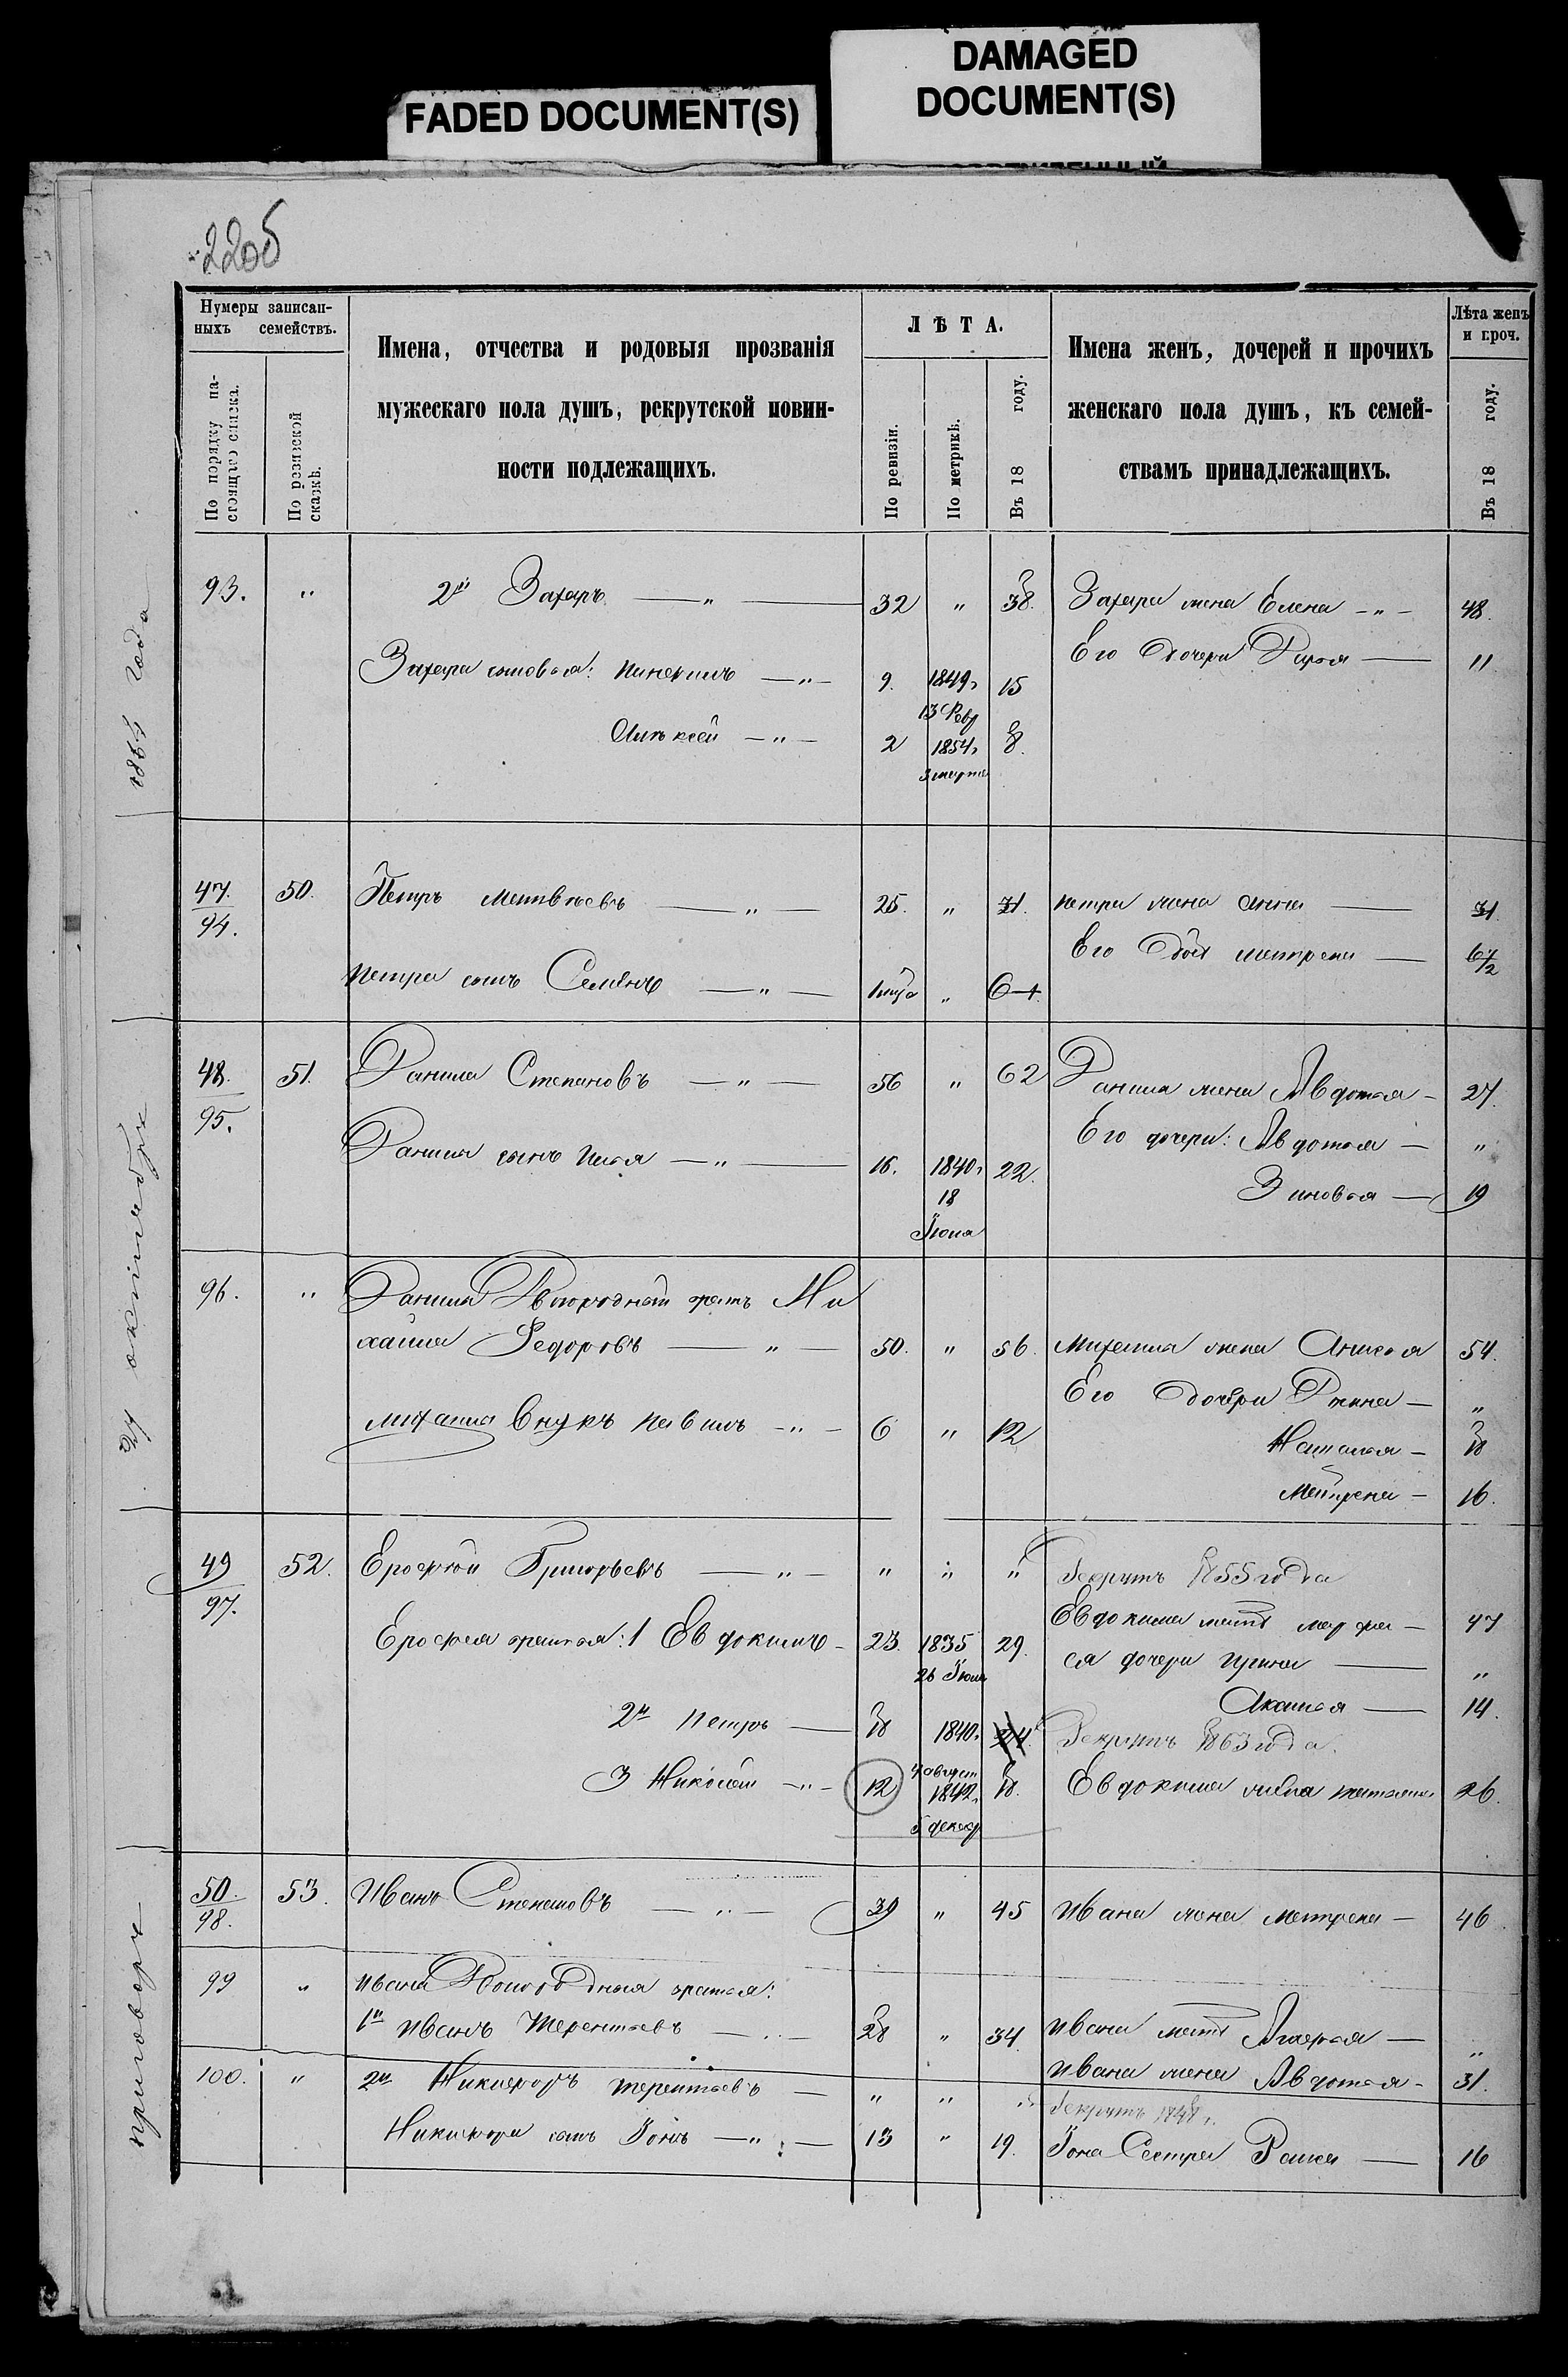 FADED DOCUMENT(S)
DAMAGED
DOCUMENT(S)
220б
Нумеры записан-
ныхъ семействъ.
По порядку на-
стоящаго списка.
По ревизской
сказкѣ.
Имена, отчества и родовыя прозванія
мужескаго пола душъ, рекрутской повин-
ности подлежащихъ.
ЛѢТА.
По ревизіи.
По метрикѣ.
Въ 18 году.
Имена женъ, дочерей и прочихъ
женскаго пола душъ, къ семей-
ствамъ принадлежащихъ.
Лѣта женъ
и проч.
Въ 18 году.
93. " 2й Захаръ — " — 32 " 38. Захара жена Елена — " — 48.
Его дочери Дарья — 11
Захара сыновья: — " — 9. 1849г 15
13 Февр
Алексей — " — 2 1854г 8.
3 марта
47. 50. Петръ Матвѣевъ — " — 25. " 31. Петра жена Анна — 31
94.
Его дочь Матрена — 6 1/2
Петра сынъ Семёнъ — " — " 6
48. 51. Данила Степановъ — " — 56 " 62 Данила жена Авдотья — 27.
95.
Его дочери: Авдотья — "
Данила сынъ Илья — " — 16. 1840г 22.
18
Іюня
Зиновья — 19
96. " Данила Двоюродный братъ Ми
хаила Федоровъ — " — 50. " 56. Михаила жена Анисья 54.
Его дочери —"
Михаила внукъ Павилъ — " — 6 " 12
Наталья — 18
Матрена — 16.
49 52. Ерофей Григорьевъ — " — " " " Рекрутъ 1855 года
97.
Евдокима мать Марфа — 47
Ерофея братья: 1 Евдокимъ — 23. 1835 29.
26 Іюля
ея дочери Ирина — "
Акулья — 14.
2й Петръ — 18 1840г 24 Рекрутъ 1863 года.
4 август
3 Николай — " — 12 1842г 18. Евдокима жена Наталья 26.
5 декаб
50. 53. Иванъ Степановъ — " — 39 " 45 Ивана жена Матрена — 46
98.
99 " Ивана Двоюродныя братья:
1й Иванъ Терентьевъ — " — 28 " 34 Ивана мать Агафья — "
Ивана жена Авдотья — 31.
100. " 2й Никифоръ Терентьевъ — " " " Рекрутъ 1848г.
Никифора сынъ Іонъ — " — 13 " 19. Іона Сестра — 16
приговоръ
24 октября
1864 года